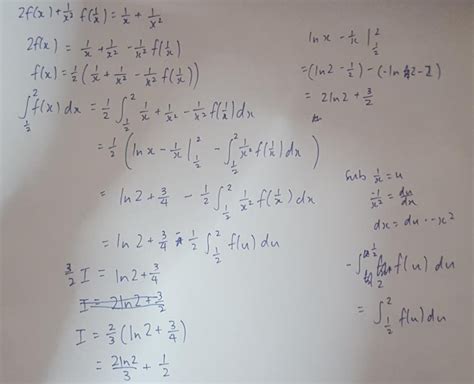 2f(x) + 1/x² f(1/x) = 1/x + 1/x²
2f(x) = 1/x + 1/x² - 1/x² f(1/x)
f(x) = 1/2 (1/x + 1/x² - 1/x² f(1/x))
∫_{1/2}^{2} f(x) dx = 1/2 ∫_{1/2}^{2} 1/x + 1/x² - 1/x² f(1/x) dx
= 1/2 (ln x - 1/x |_{1/2}^{2} - ∫_{1/2}^{2} 1/x² f(1/x) dx)
= ln2 + 3/4 - 1/2 ∫_{1/2}^{2} 1/x² f(1/x) dx
= ln2 + 3/4 - 1/2 ∫_{1/2}^{2} f(u) du
3/2 I = ln2 + 3/4
I = 2ln2 + 3/2
I = 2/3 (ln2 + 3/4)
= 2ln2/3 + 1/2
ln x - 1/x |_{1/2}^{2}
= (ln2 - 1/2) - (-ln2 - 2)
= 2ln2 + 3/2
sub 1/x = u
-1/x² = du/dx
dx = du · -x²
- ∫_{2}^{1/2} f(u) du
= ∫_{1/2}^{2} f(u) du